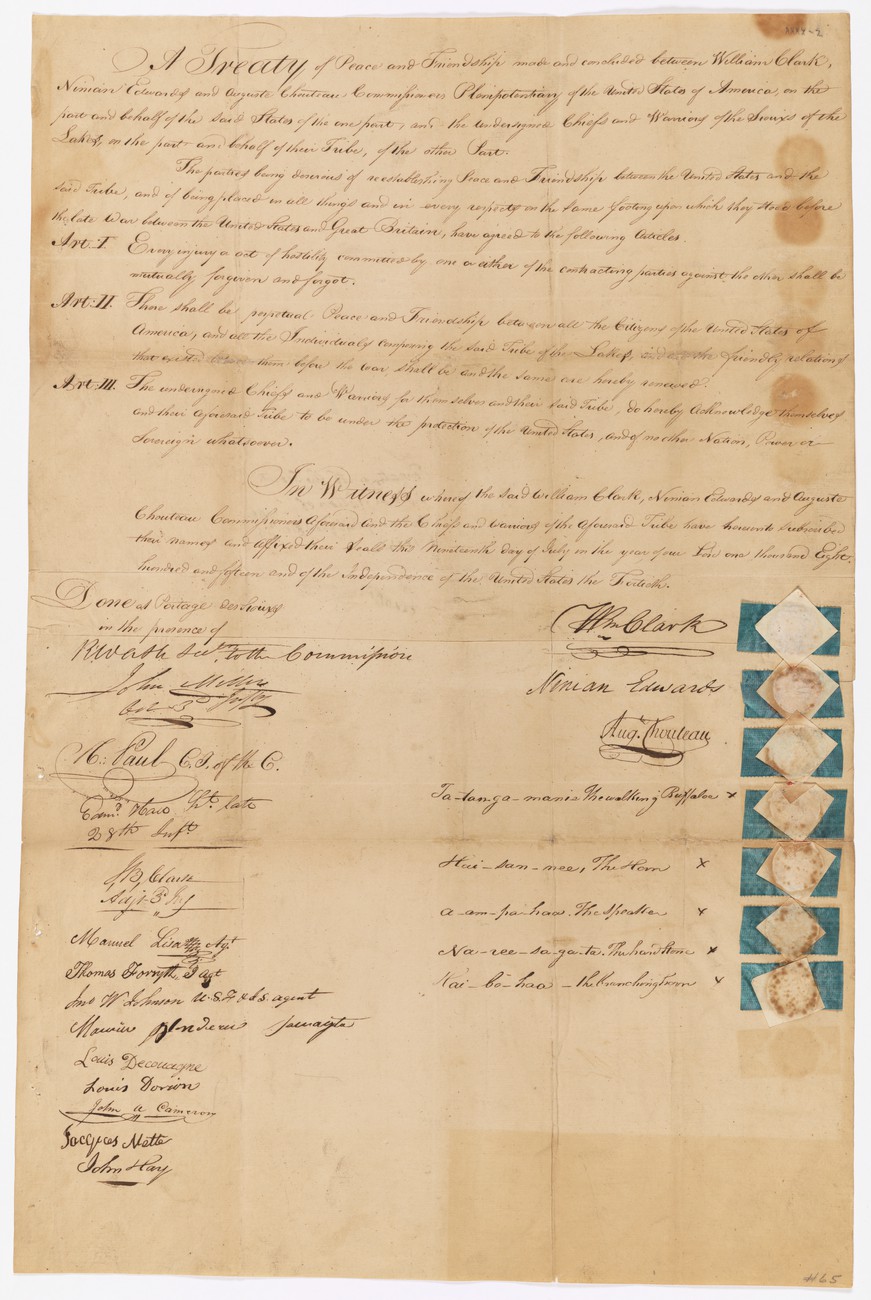 A Treaty of Peace and Friendship made and concluded between William Clark,
Ninian Edwards and Auguste Chouteau Commissioners Plenipotentiary of the United States of America, on the
part and behalf of the said States of the one part, and the undersigned Chiefs and Warriors of the Siouxs of the
Lakes, on the part and behalf of their Tribe, of the other Part.
The parties being desirous of re establishing Peace and Friendship between the United States and the
said Tribe, and of being placed in all things and in every respect on the same footing upon which they stood before
the late War between the United States and Great Britain, have agreed to the following Articles.
Art: I. Every injury or act of hostility committed by one or either of the contracting parties against the other shall be
mutually forgiven and forgot.
Art: II. There shall be perpetual Peace and Friendship between all the Citizens of the United States of
America, and all the Individuals composing the said Tribe of the Lakes, and all the friendly relations
that existed between them before the war shall be and the same are hereby renewed.
Art: III. The undersigned Chiefs and Warriors for themselves and their said Tribe, do hereby Acknowledge themselves
and their aforesaid Tribe to be under the protection of the United States, and of no other Nation, Power or
Sovereign whatsoever.
In Witness whereof the said William Clark, Ninian Edwards and Auguste
Chouteau Commissioners aforesaid and the Chiefs and warriors of the aforesaid Tribe have hereunto subscribed
their names and affixed their seals this Nineteenth day of July in the year of our Lord one thousand Eight
hundred and fifteen and of the Independence of the United States the Fortieth.
Done at Portage des Sioux
in the presence of
Wm Clark
R Wash Secy. to the Commission
Ninian Edwards
John Miller
Col 3d Infty
Augte. Chouteau
H: Paul C.I. of the C.
Ta-tan-ga-manie The walking Buffaloe x
Edmd. Hall Lt. late
28th Inft.
Hai-san-nee, The Horn x
JB Clark
Adjt. 3d Inf
A-am-pa-haa. The Speaker x
Manuel Lisa Agt
Na-ree-sa-ga-ta. The hard Stone x
Thomas Forsyth I agt
Hai-bo-haa - the Branching horn x
Jno W Johnson U.S.F & I.S. agent
Maurice Blondeau
Louis Decouagne
Louis Dorion
John A Cameron
Jacques Mette
John Hay
#65